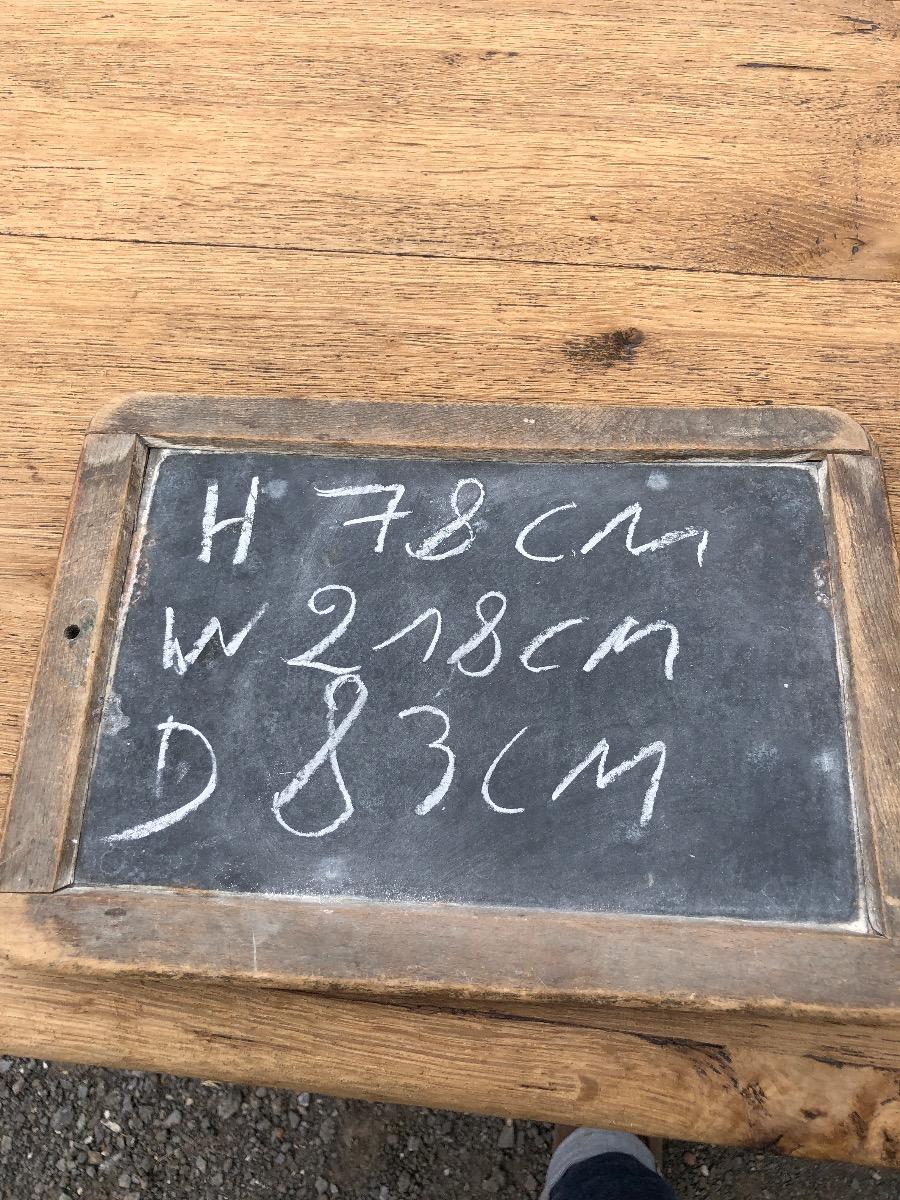 H 78 cm
W 218 cm
D 83 cm